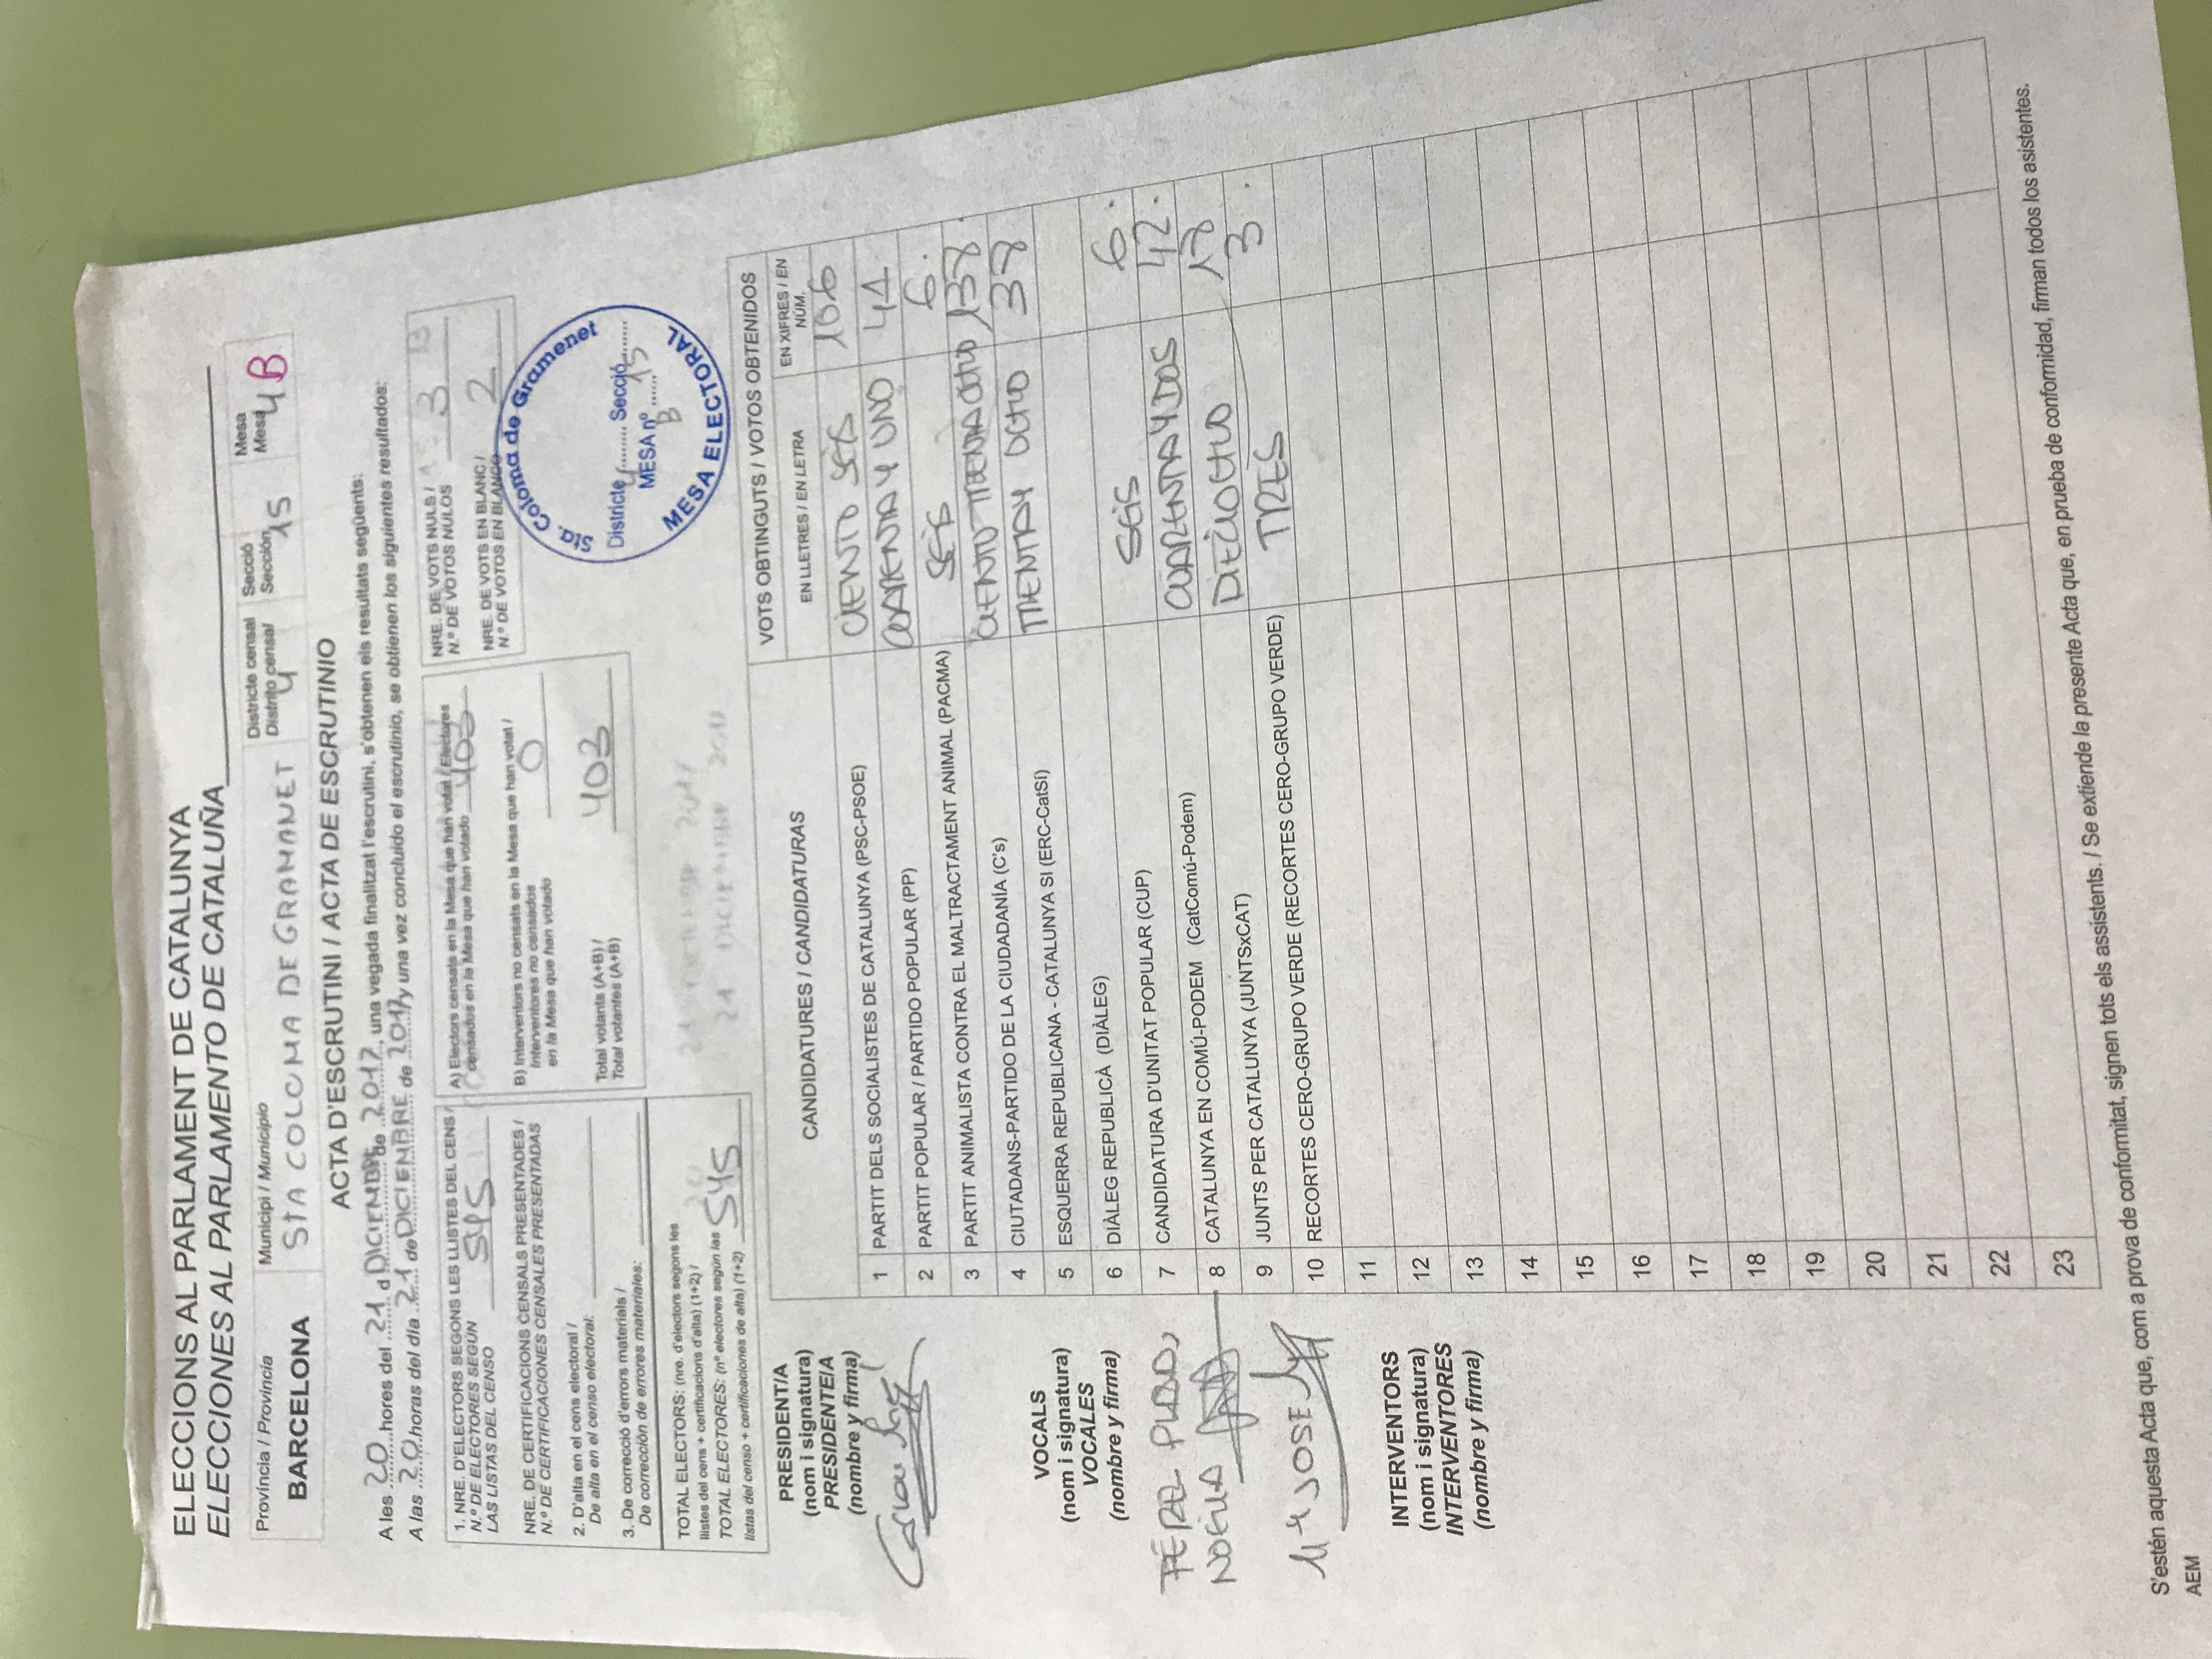 ELECCIONS AL PARLAMENT DE CATALUNYA
ELECCIONES AL PARLAMENTO DE CATALUÑA
Província / Provincia
BARCELONA
Municipi / Municipio
STA COLOMA DE GRAMANET
Districte censal
Distrito censal
4
Secció
Sección
15
Mesa
Mesa
4 B
ACTA D'ESCRUTINI / ACTA DE ESCRUTINIO
A les 20 hores del 21 d DICIEMBRE de 2017, una vegada finalitzat l'escrutini, s'obtenen els resultats següents:
A las 20 horas del dia 21 de DICIEMBRE de 2017 y una vez concluido el escrutinio, se obtienen los siguientes resultados:
1. NRE. D'ELECTORS SEGONS LES LLISTES DEL CENS /
N.º DE ELECTORES SEGÚN
LAS LISTAS DEL CENSO 545
NRE. DE CERTIFICACIONS CENSALS PRESENTADES /
N.º DE CERTIFICACIONES CENSALES PRESENTADAS
2. D'alta en el cens electoral /
De alta en el censo electoral:
3. De correcció d'errors materials /
De corrección de errores materiales:
TOTAL ELECTORS: (nre. d'electors segons les
llistes del cens + certificacions d'alta) (1+2) /
TOTAL ELECTORES: (nº electores según las
listas del censo + certificaciones de alta) (1+2) 545
A) Electors censats en la Mesa que han votat / Electores
censados en la Mesa que han votado 403
B) Interventors no censats en la Mesa que han votat /
Interventores no censados
en la Mesa que han votado 0
Total votants (A+B) /
Total votantes (A+B) 403
21 DICIEMBRE 2017
21 DICIEMBRE 2017
NRE. DE VOTS NULS /
N.º DE VOTOS NULOS 3
NRE. DE VOTS EN BLANC /
N.º DE VOTOS EN BLANCO 2
Sta. Coloma de Gramenet
Districte 4 Secció 15
MESA nº B
MESA ELECTORAL
PRESIDENT/A
(nom i signatura)
PRESIDENTE/A
(nombre y firma)
VOCALS
(nom i signatura)
VOCALES
(nombre y firma)
NOELIA
Mª JOSE
INTERVENTORS
(nom i signatura)
INTERVENTORES
(nombre y firma)
CANDIDATURES / CANDIDATURAS
VOTS OBTINGUTS / VOTOS OBTENIDOS
EN LLETRES / EN LETRA
EN XIFRES / EN NÚM.
1 PARTIT DELS SOCIALISTES DE CATALUNYA (PSC-PSOE) CIENTO SEIS 106
2 PARTIT POPULAR / PARTIDO POPULAR (PP) CUARENTA Y UNO 41
3 PARTIT ANIMALISTA CONTRA EL MALTRACTAMENT ANIMAL (PACMA) SEIS 6.
4 CIUTADANS-PARTIDO DE LA CIUDADANÍA (C's) CIENTO TREINTA OCHO 138.
5 ESQUERRA REPUBLICANA - CATALUNYA SI (ERC-CatSí) TREINTA Y OCHO 38
6 DIÀLEG REPUBLICÀ (DIÀLEG)
7 CANDIDATURA D'UNITAT POPULAR (CUP) SEIS 6.
8 CATALUNYA EN COMÚ-PODEM (CatComú-Podem) CUARENTA Y DOS 42.
9 JUNTS PER CATALUNYA (JUNTSxCAT) DIECIOCHO 18
10 RECORTES CERO-GRUPO VERDE (RECORTES CERO-GRUPO VERDE) TRES 3.
11
12
13
14
15
16
17
18
19
20
21
22
23
S'estén aquesta Acta que, com a prova de conformitat, signen tots els assistents. / Se extiende la presente Acta que, en prueba de conformidad, firman todos los asistentes.
AEM